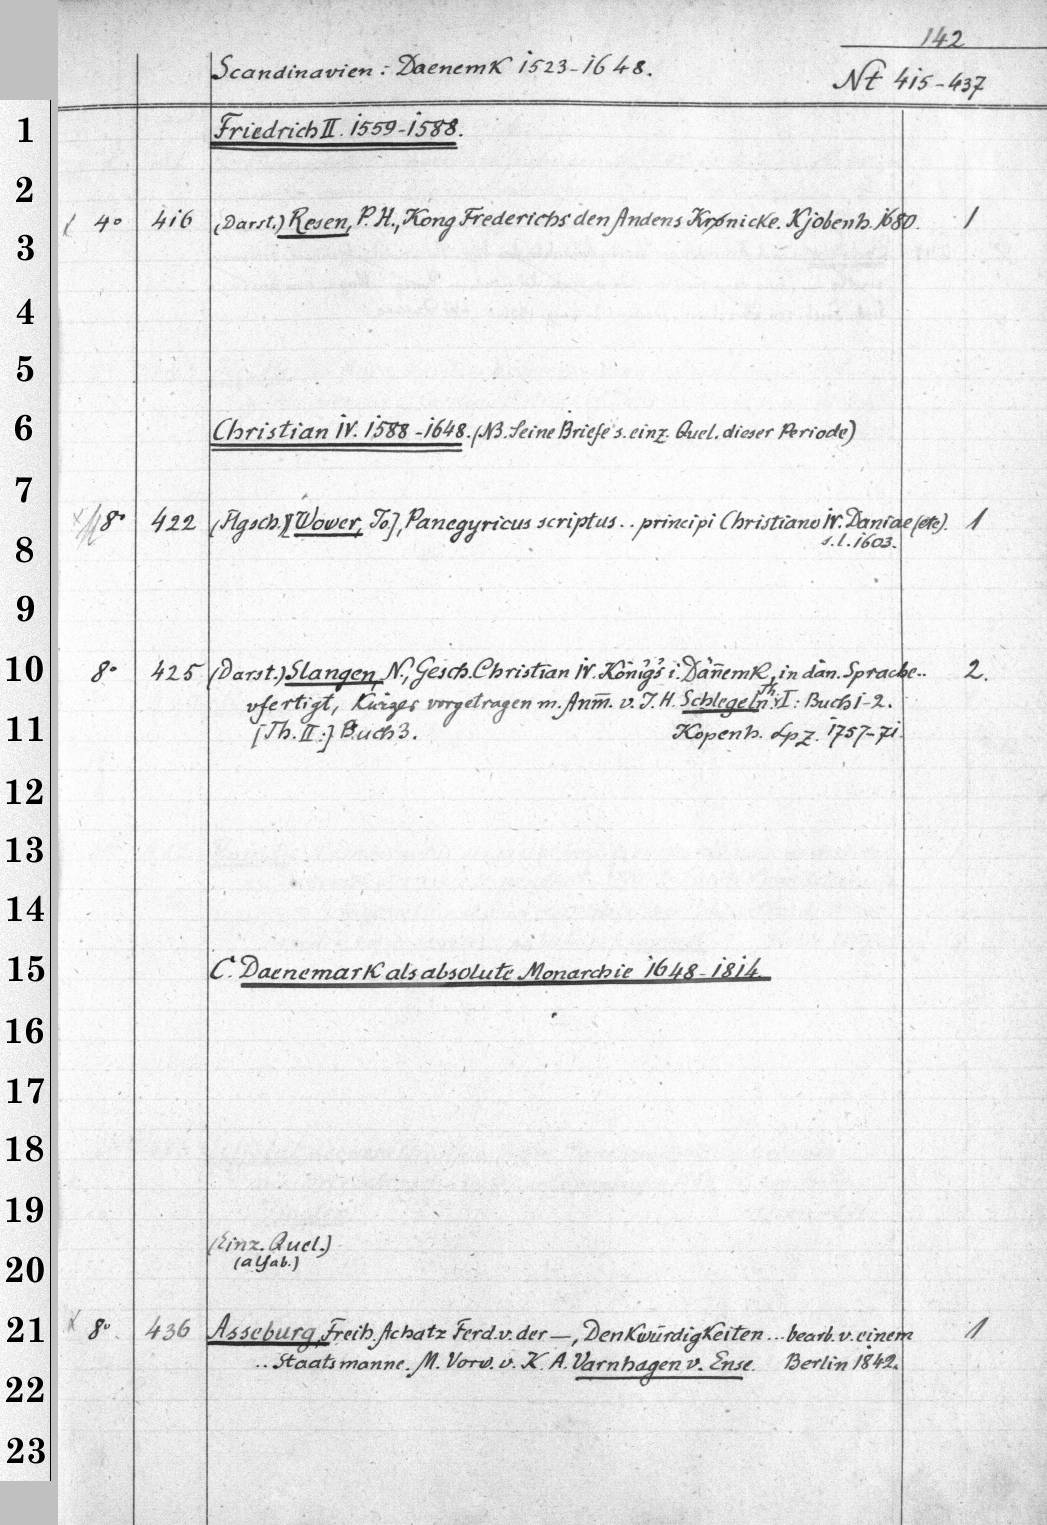 142
Scandinavien : Daenemk 1523-1648.
Nt 415-437
1
Friedrich II. 1559-1588.
2
4° 416 (Darst.) Resen, P. H., Kong Frederichs den Andens Krønicke. Kjobenh. 1680. 1
3
4
5
6
Christian IV. 1588-1648. (NB. Seine Briefe s. einz. Quel. dieser Periode)
7
8° 422 (Agsch.) [Wower, Jo.], Panegyricus scriptus .. principi Christiano IV. Daniae (etc). 1
s.l. 1603.
8
9
10
8° 425 (Darst.) Slangen, N., Gesch. Christian IV. Königs i. Dänemk, in dän. Sprache.. 2.
vfertigt, Kürzes vorgetragen m. Anm. v. J. H. Schlegeln. Th. I : Buch 1-2.
[Th. II :] Buch 3. Kopenh. Lpz. 1757-71.
11
12
13
14
15
C. Daenemark als absolute Monarchie 1648-1814.
16
17
18
19
(Einz. Quel.)
(alfab.)
20
21
8° 436 Asseburg, Freih. Achatz Ferd. v. der —, Denkwürdigkeiten ... bearb. v. einem 1
.. Staatsmanne. M. Vorw. v. K. A. Varnhagen v. Ense. Berlin 1842.
22
23